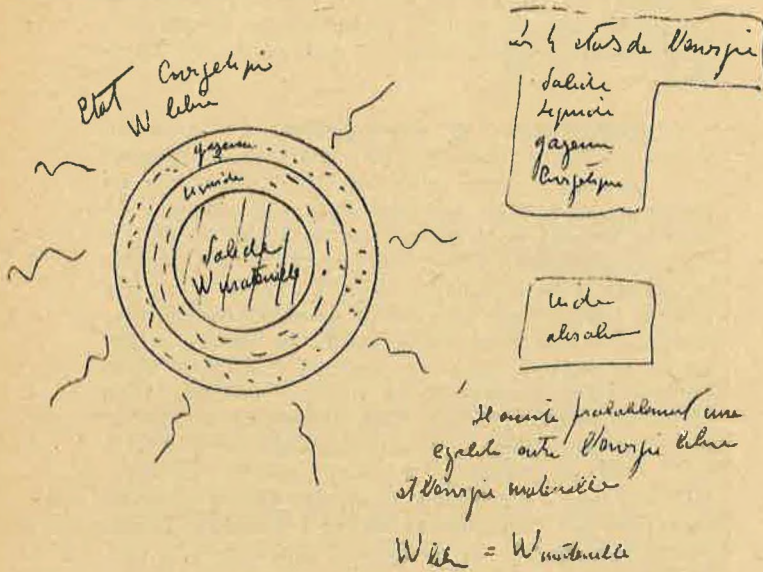 Etat Energétique
W libre
gazeux
liquide
Solide
W matérielle
les 4 états de l'énergie
Solide
Liquide
gazeux
Energétique
vide
absolu
Il existe probablement une
égalité entre l'énergie libre
et l'énergie matérielle
W libre = W matérielle